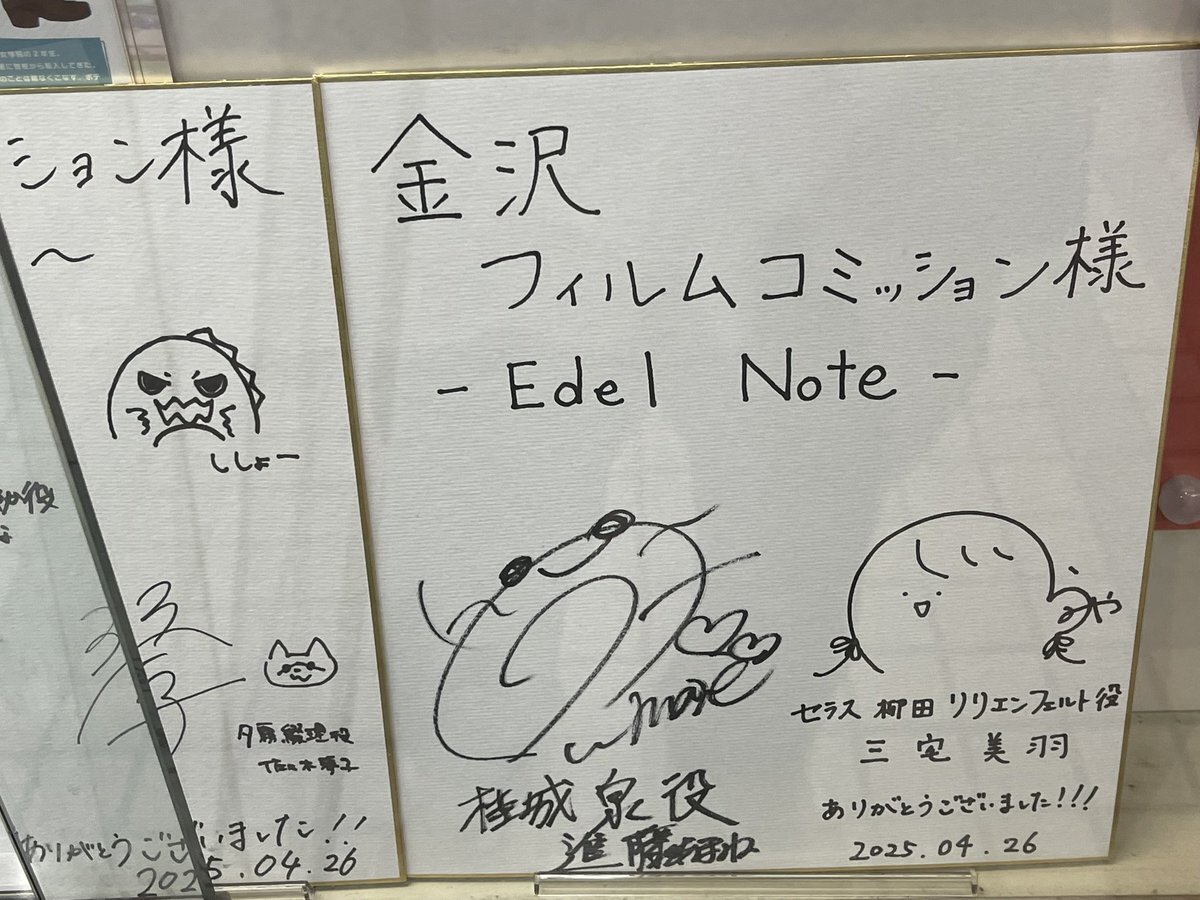 ション様
～
ししょー
役
夕霧綴理役
佐々木琴子
ありがとうございました!!
2025.04.26
金沢
フィルムコミッション様
- Edel Note -
桂城泉役
進藤あまね
みやけ
セラス 柳田 リリエンフェルト役
三宅美羽
ありがとうございました!!!
2025.04.26